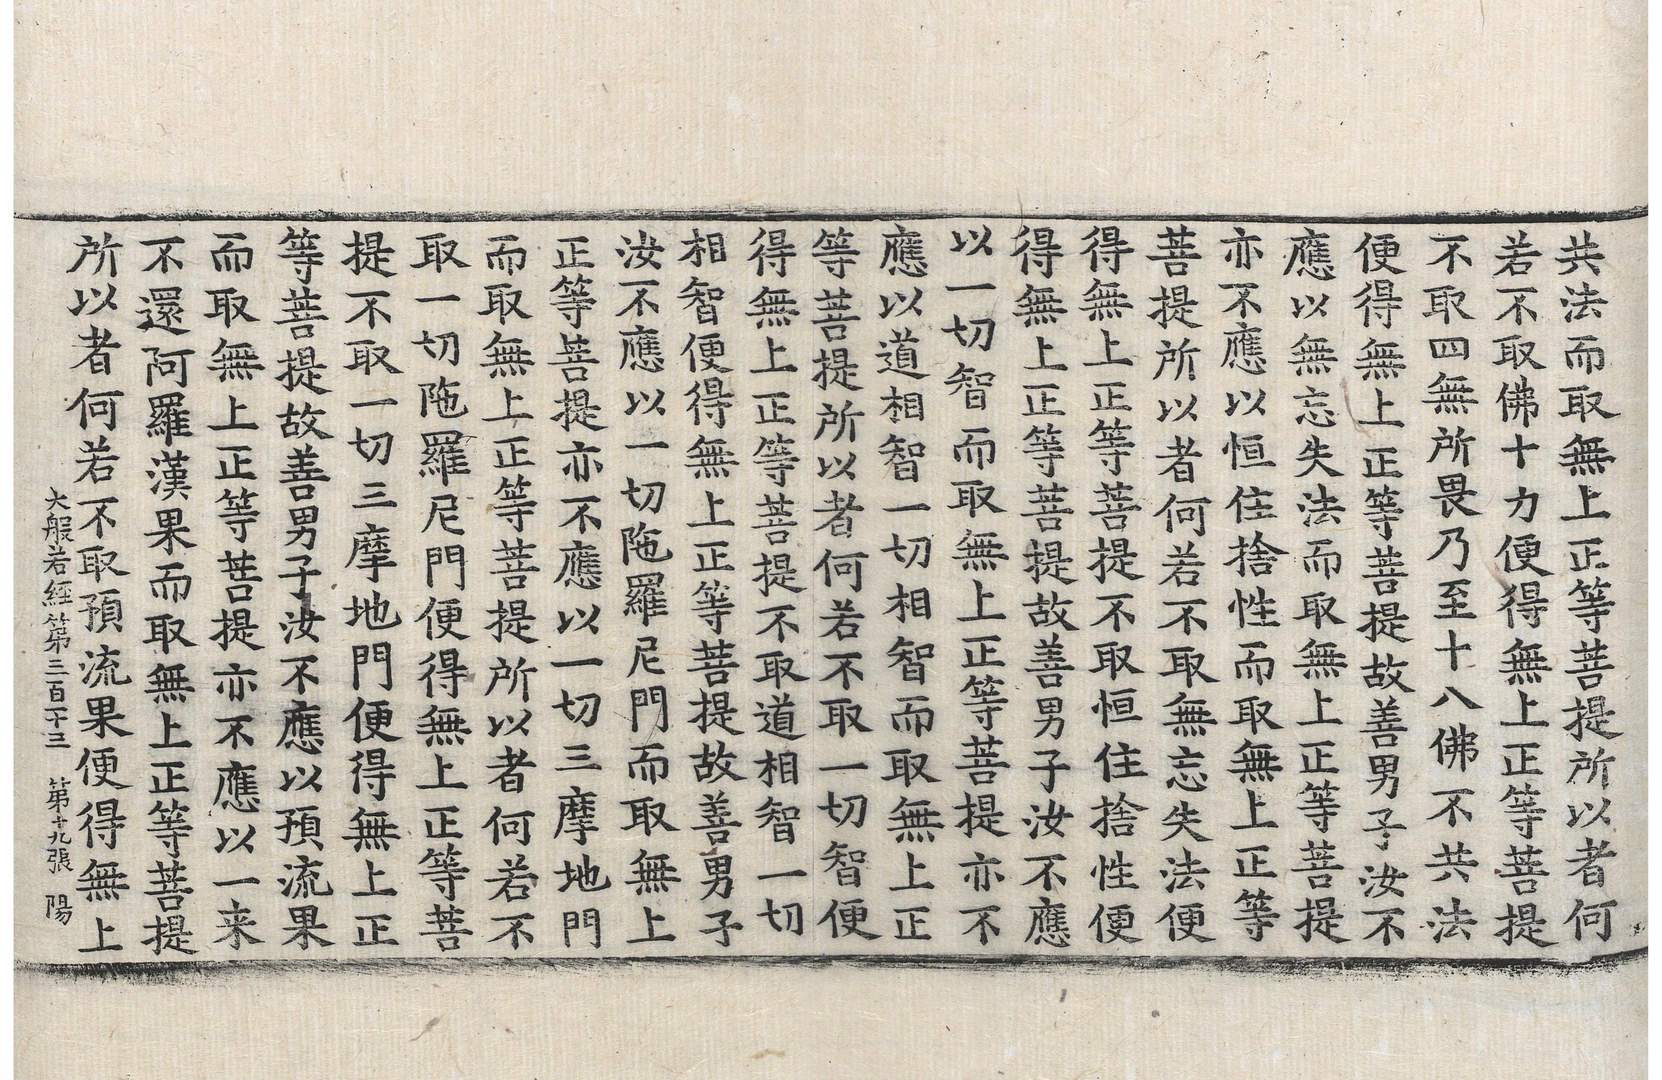 共法而取無上正等菩提所以者何
若不取佛十力便得無上正等菩提
不取四無所畏乃至十八佛不共法
便得無上正等菩提故善男子汝不
應以無忘失法而取無上正等菩提
亦不應以恒住捨性而取無上正等
菩提所以者何若不取無忘失法便
得無上正等菩提不取恒住捨性便
得無上正等菩提故善男子汝不應
以一切智而取無上正等菩提亦不
應以道相智一切相智而取無上正
等菩提所以者何若不取一切智便
得無上正等菩提不取道相智一切
相智便得無上正等菩提故善男子
汝不應以一切陁羅尼門而取無上
正等菩提亦不應以一切三摩地門
而取無上正等菩提所以者何若不
取一切陁羅尼門便得無上正等菩
提不取一切三摩地門便得無上正
等菩提故善男子汝不應以預流果
而取無上正等菩提亦不應以一来
不還阿羅漢果而取無上正等菩提
所以者何若不取預流果便得無上
大般若經第三百一十三　第十九張　陽